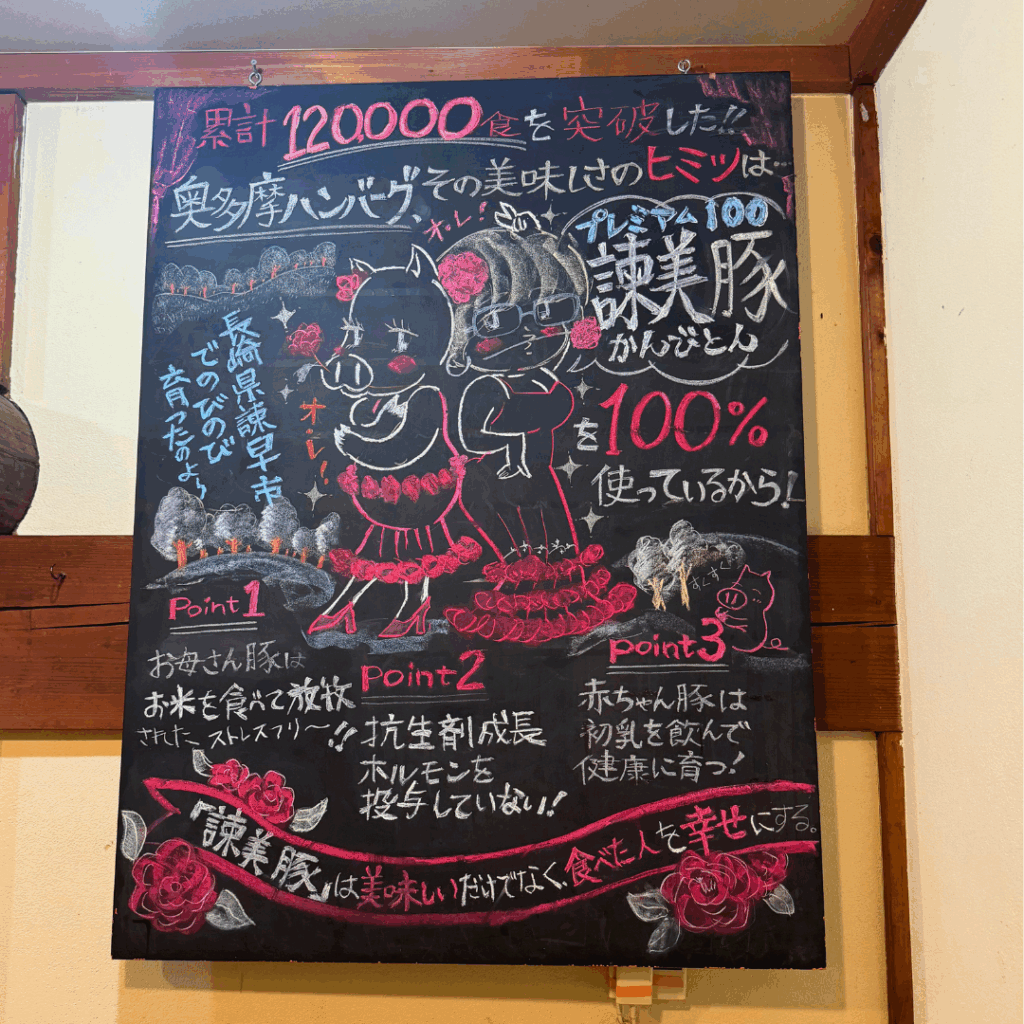 累計120000食を突破した!!
奥多摩ハンバーグ、その美味しさのヒミツは…
プレミアム100
諫美豚
かんびとん
を100%
使っているから!
オ・レ!
オ・レ!
長崎県諫早市
でのびのび
育ったのよ〜
すくすく
Point1
お母さん豚は
お米を食べて放牧
された ストレスフリー〜!!
Point2
抗生剤成長
ホルモンを
投与していない!
Point3
赤ちゃん豚は
初乳を飲んで
健康に育つ!
「諫美豚」は美味しいだけでなく、食べた人を幸せにする。